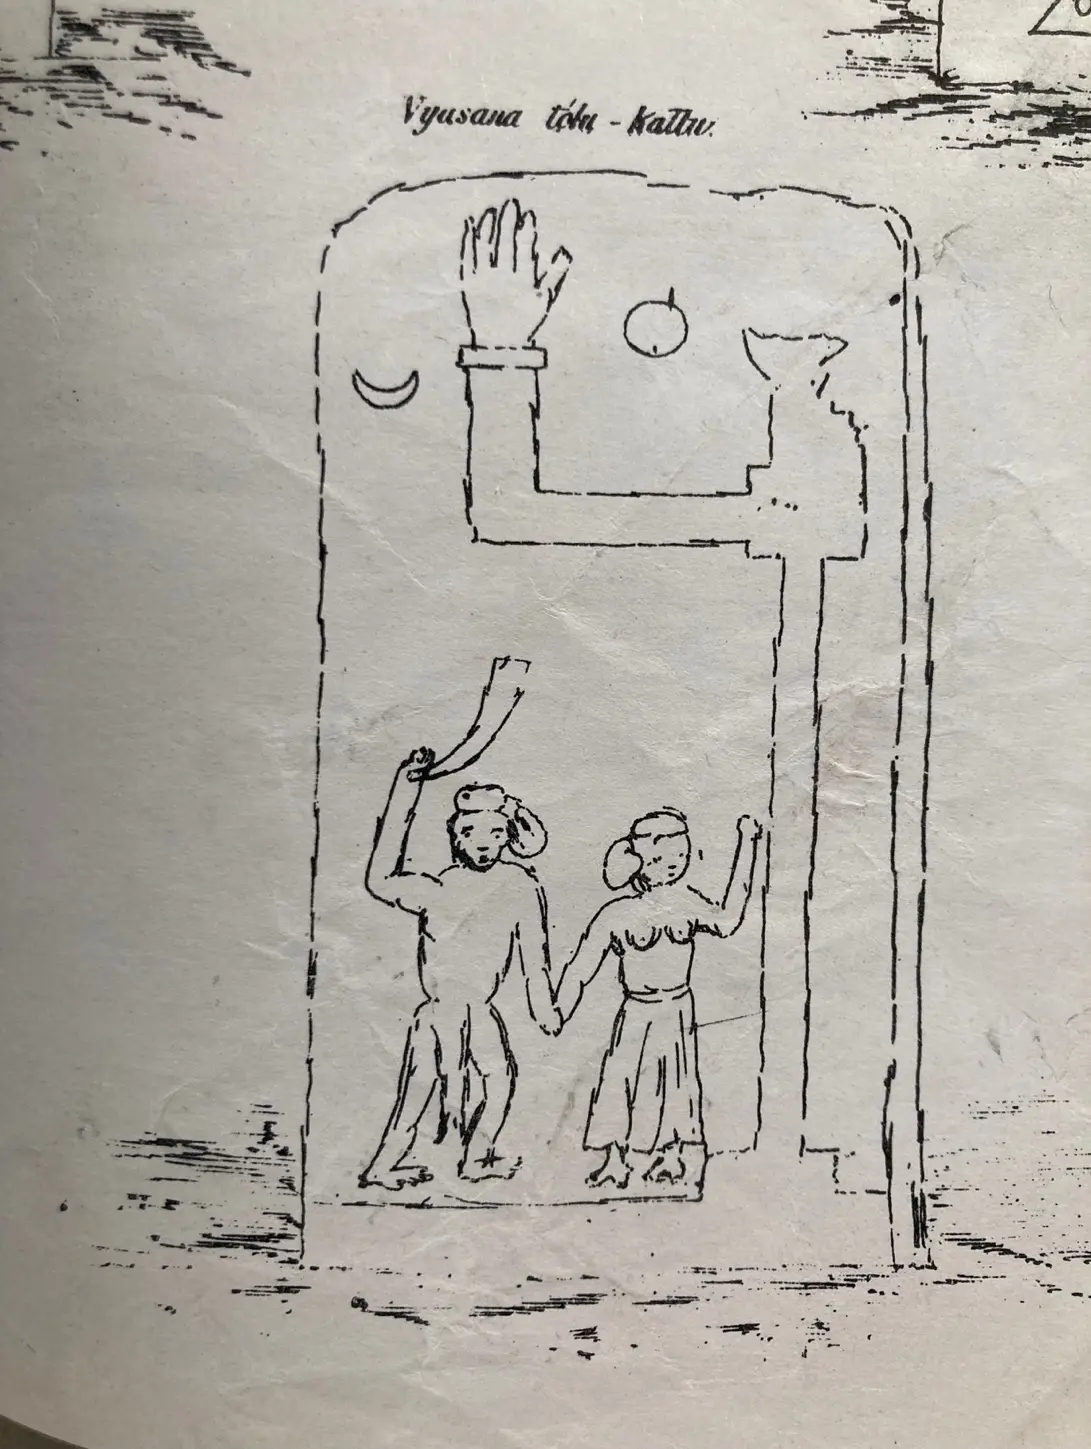 Vyasana tólu - Kallu.